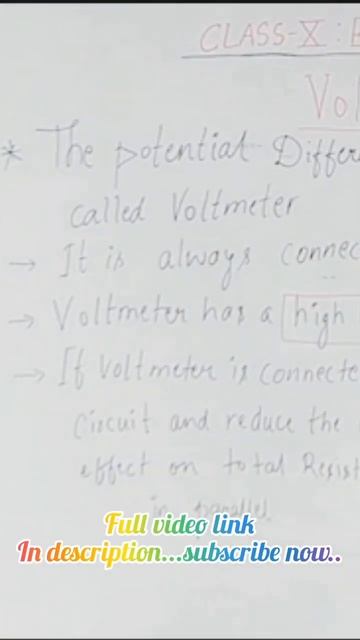 CLASS-X : E
Vol
* The potential Differ
called Voltmeter
→ It is always connec
→ Voltmeter has a high
→ If Voltmeter is connecte
Circuit and reduce the
effect on total Resist
in parallel.
Full video link
In description...subscribe now..